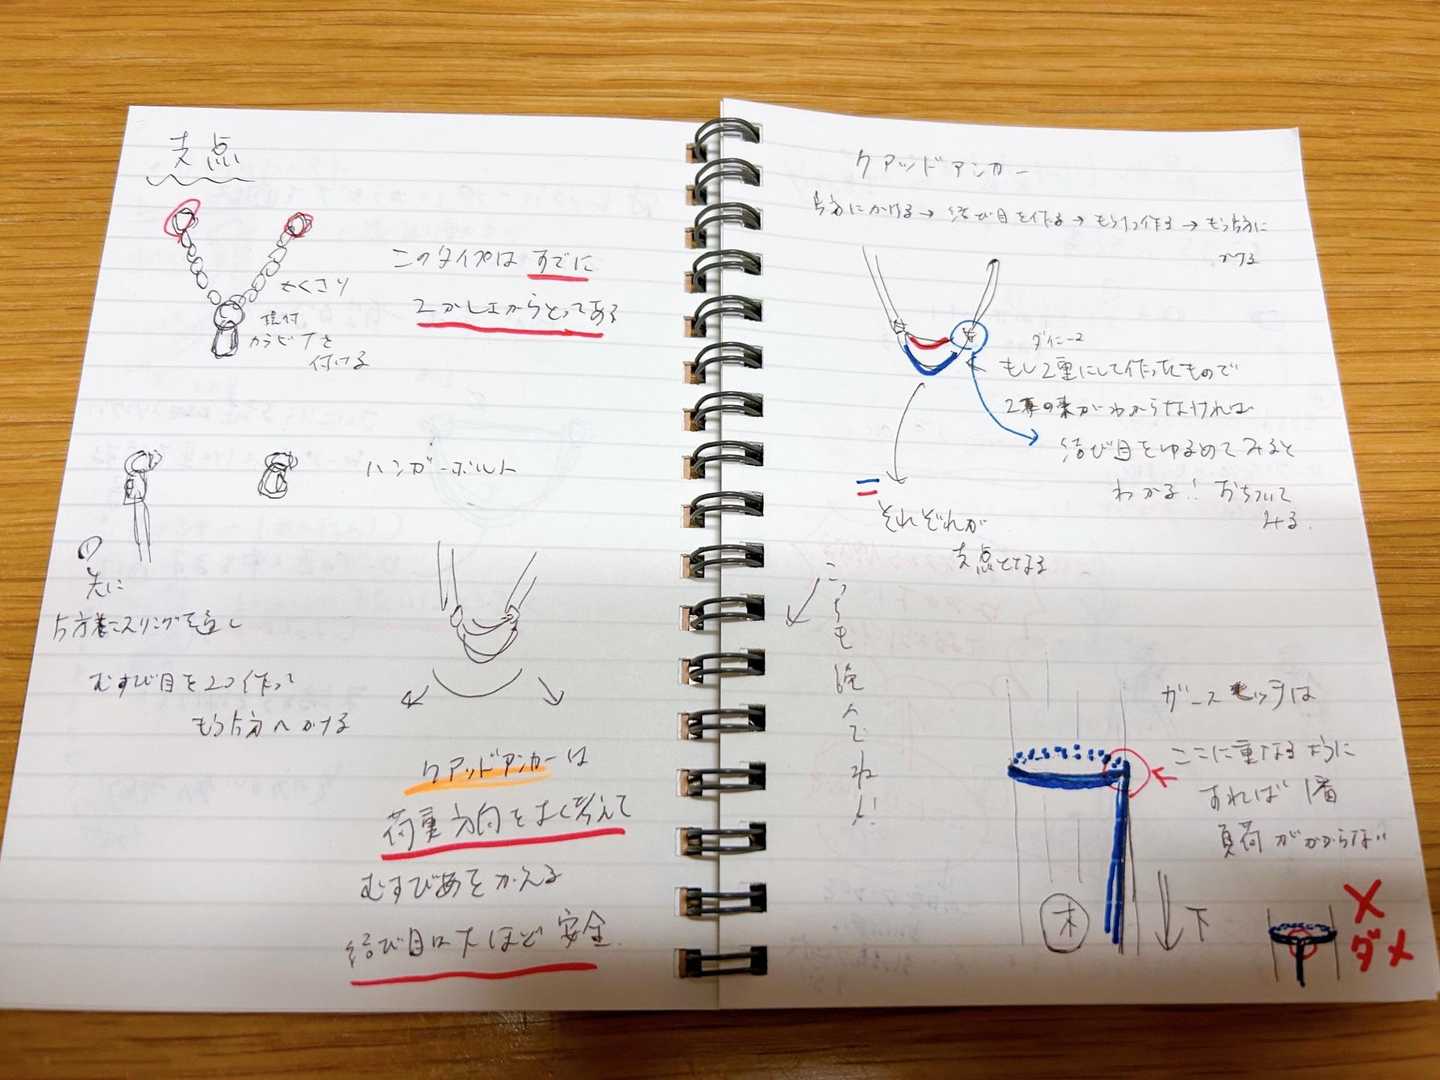 支点
このタイプは すでに
2かしょからとってある
くさり
環付
カラビナを
付ける
ハンガーボルト
① 先に
片方にスリングを通し
むすび目を2つ作って
もう片方へかける
クアッドアンカーは
荷重方向をよく考えて
むすびめをかえる
結び目は大ほど安全
クアッドアンカー
片方にかける→結び目を作る→もう1つ作る→もう片方に
かける
ダイニーマ
もし2重にして作ったもので
2本の束がわからなければ
結び目をゆるめてみると
わかる! おちついて
みる.
それぞれが
支点となる
ガースヒッチは
ここに重なるように
すれば 1番
負荷がかからない
木
下
×
ダメ